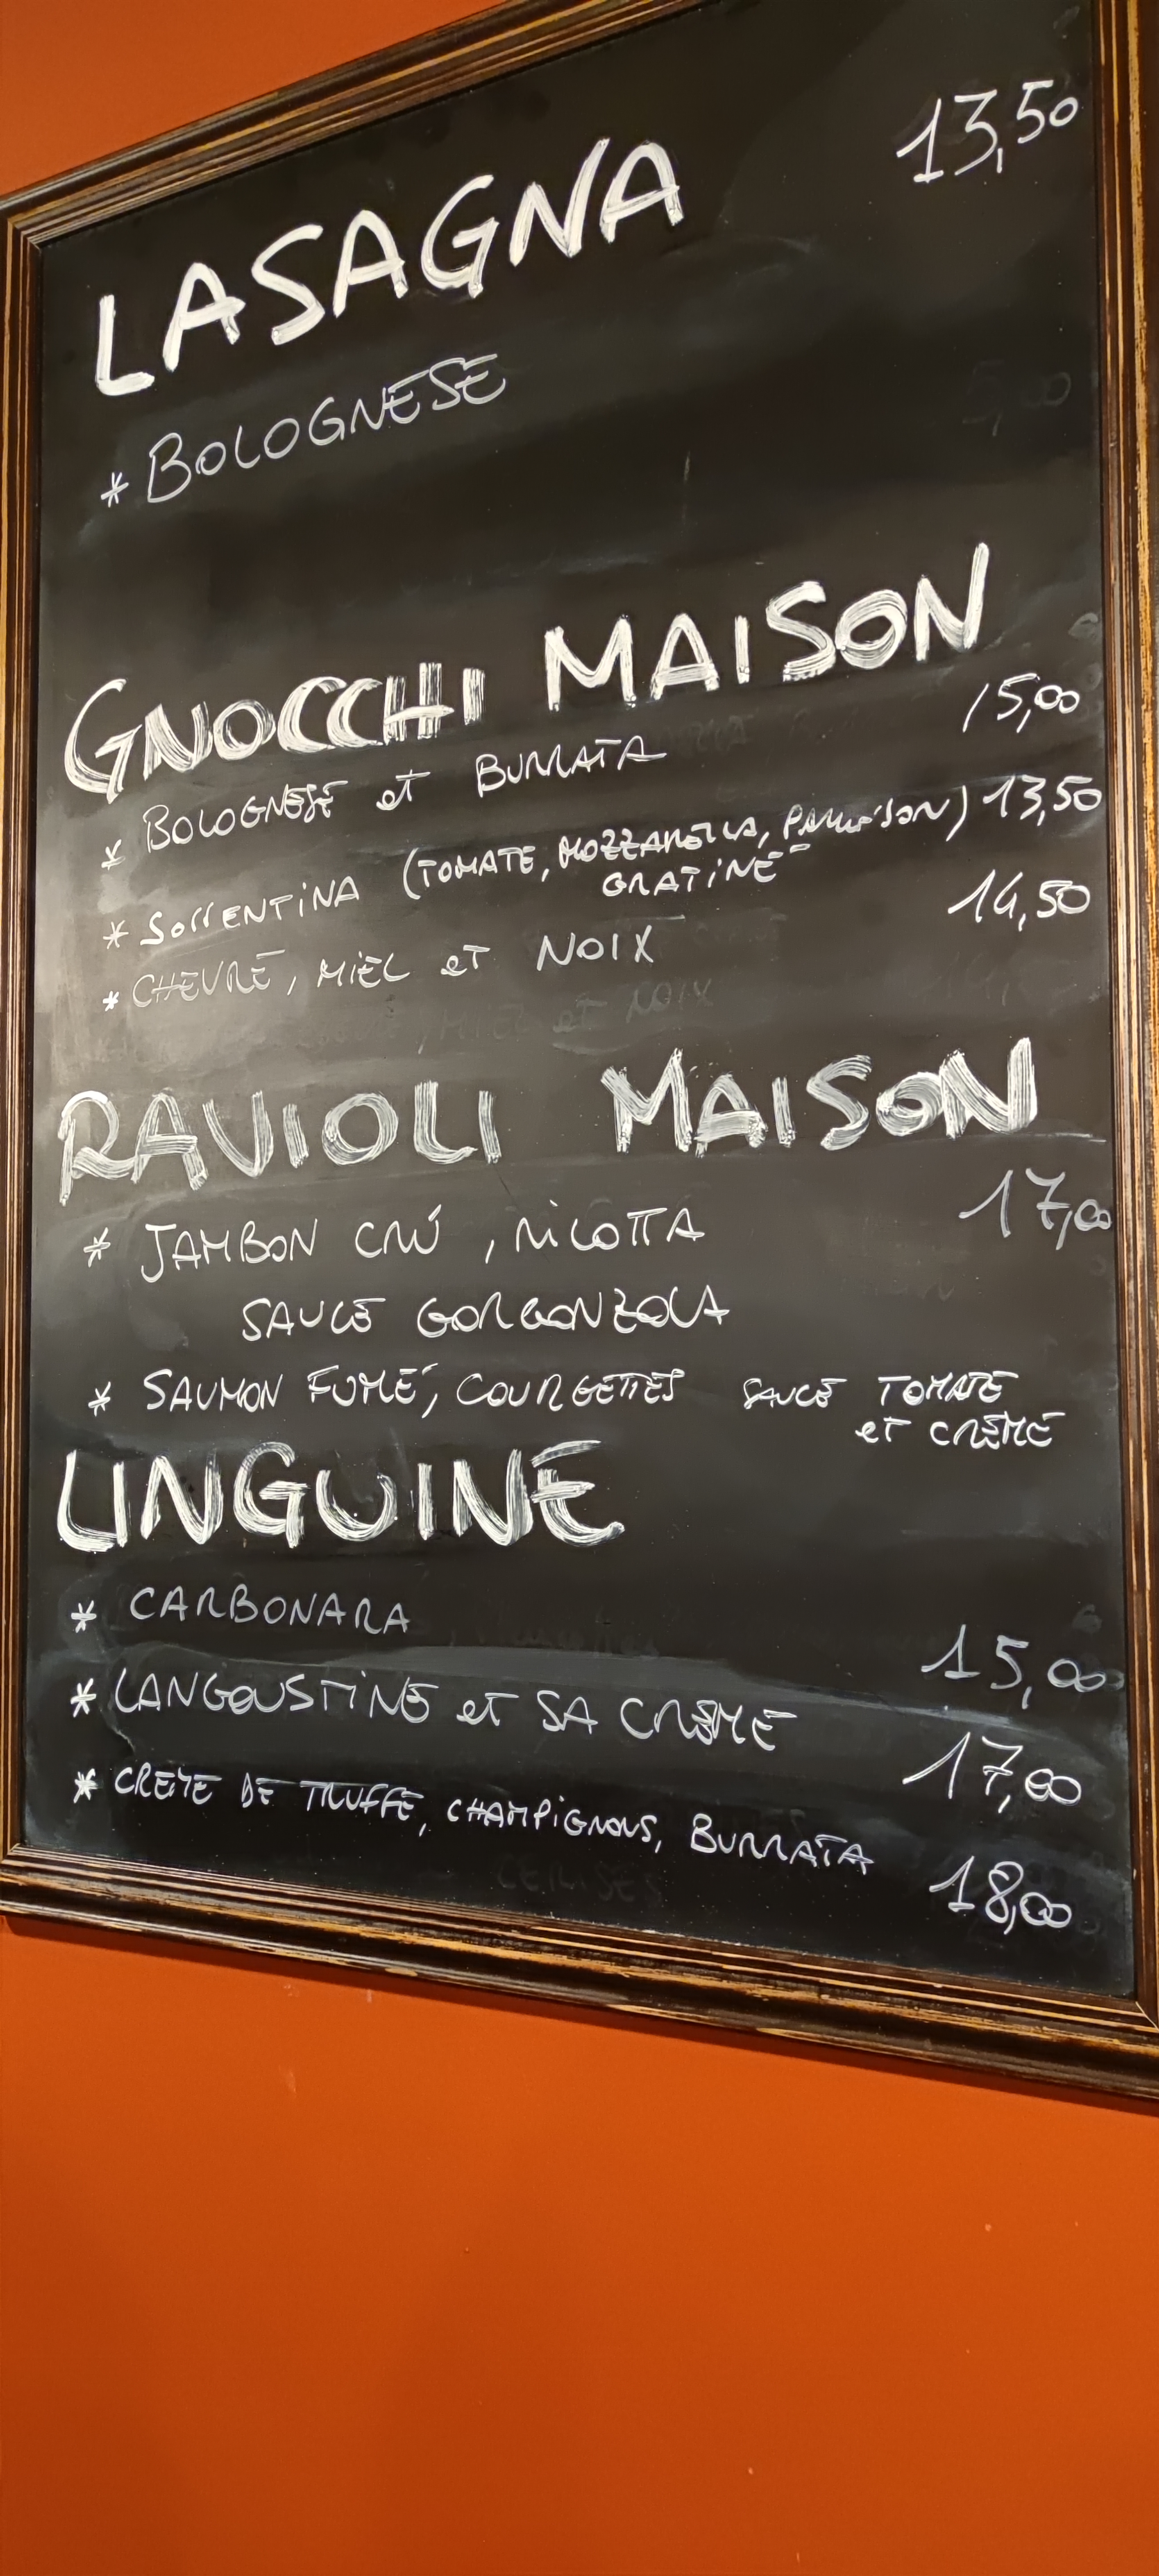 LASAGNA 13,50
* BOLOGNESE
GNOCCHI MAISON
* BOLOGNESE et BURRATA 15,00
* SORRENTINA (TOMATE, MOZZARELLA, PARMESON) 13,50
GRATINÉ
* CHEVRE, MIEL et NOIX 14,50
RAVIOLI MAISON
* JAMBON CRÚ, RICOTTA 17,00
SAUCE GORGONZOLA
* SAUMON FUMÉ, COURGETTES SAUCE TOMATE
et CRÈME
LINGUINE
* CARBONARA 15,00
* LANGOUSTINE et SA CRÈME 17,00
* CREME DE TRUFFE, CHAMPIGNONS, BURRATA 18,00